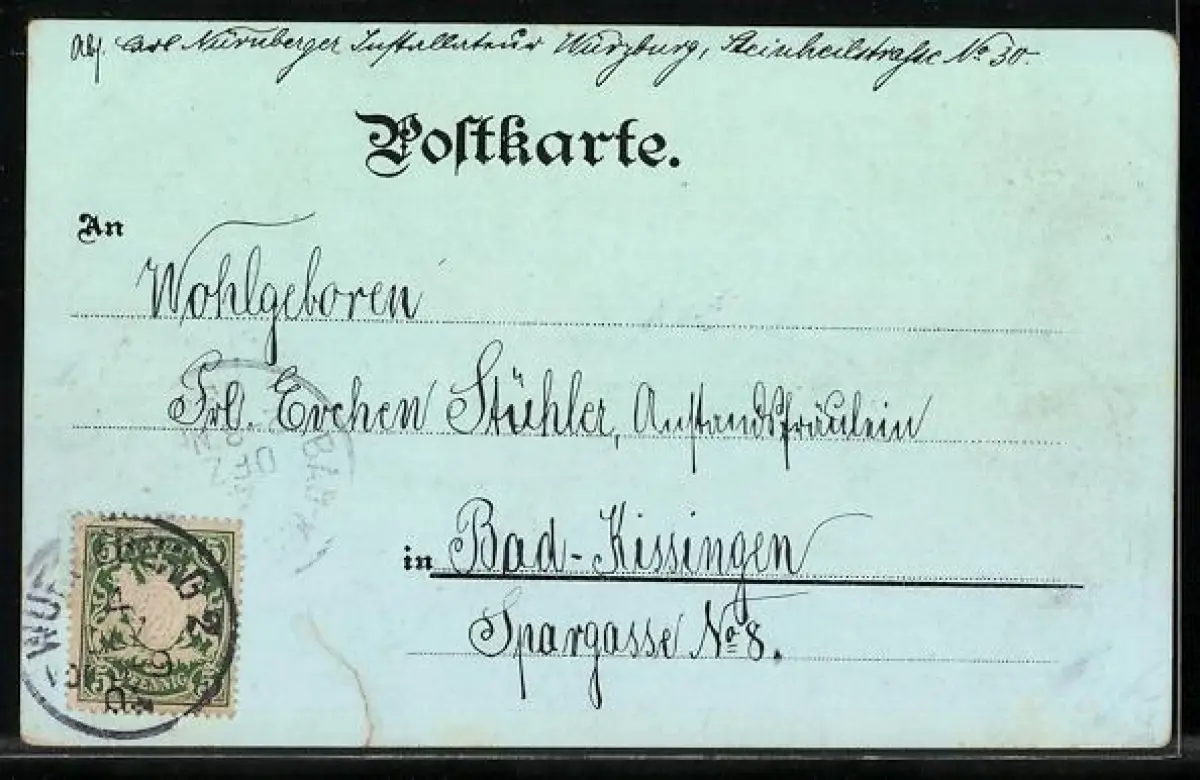 Abs. Carl Nürnberger Installateur Würzburg, Steinheilstrasse No. 30.
Postkarte.
An
Wohlgeboren
Frl. Evchen Stühler, Anstandsfräulein
in Bad-Kissingen
Spargasse No 8.
BAD
5 5
PFENNIG